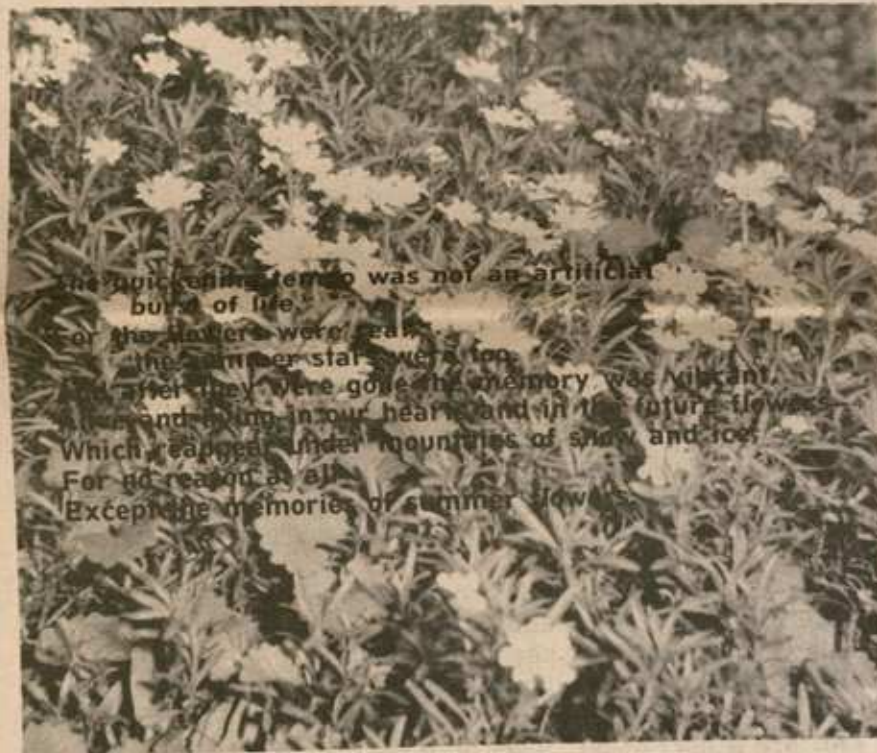 The quickening tempo was not an artificial
burst of life
For the flowers were real,
the summer stars were too
after they were gone the memory was vibrant,
and living in our hearts and in the future flowers
Which reappear under mountains of snow and ice,
For no reason at all
Except the memories of summer flowers.